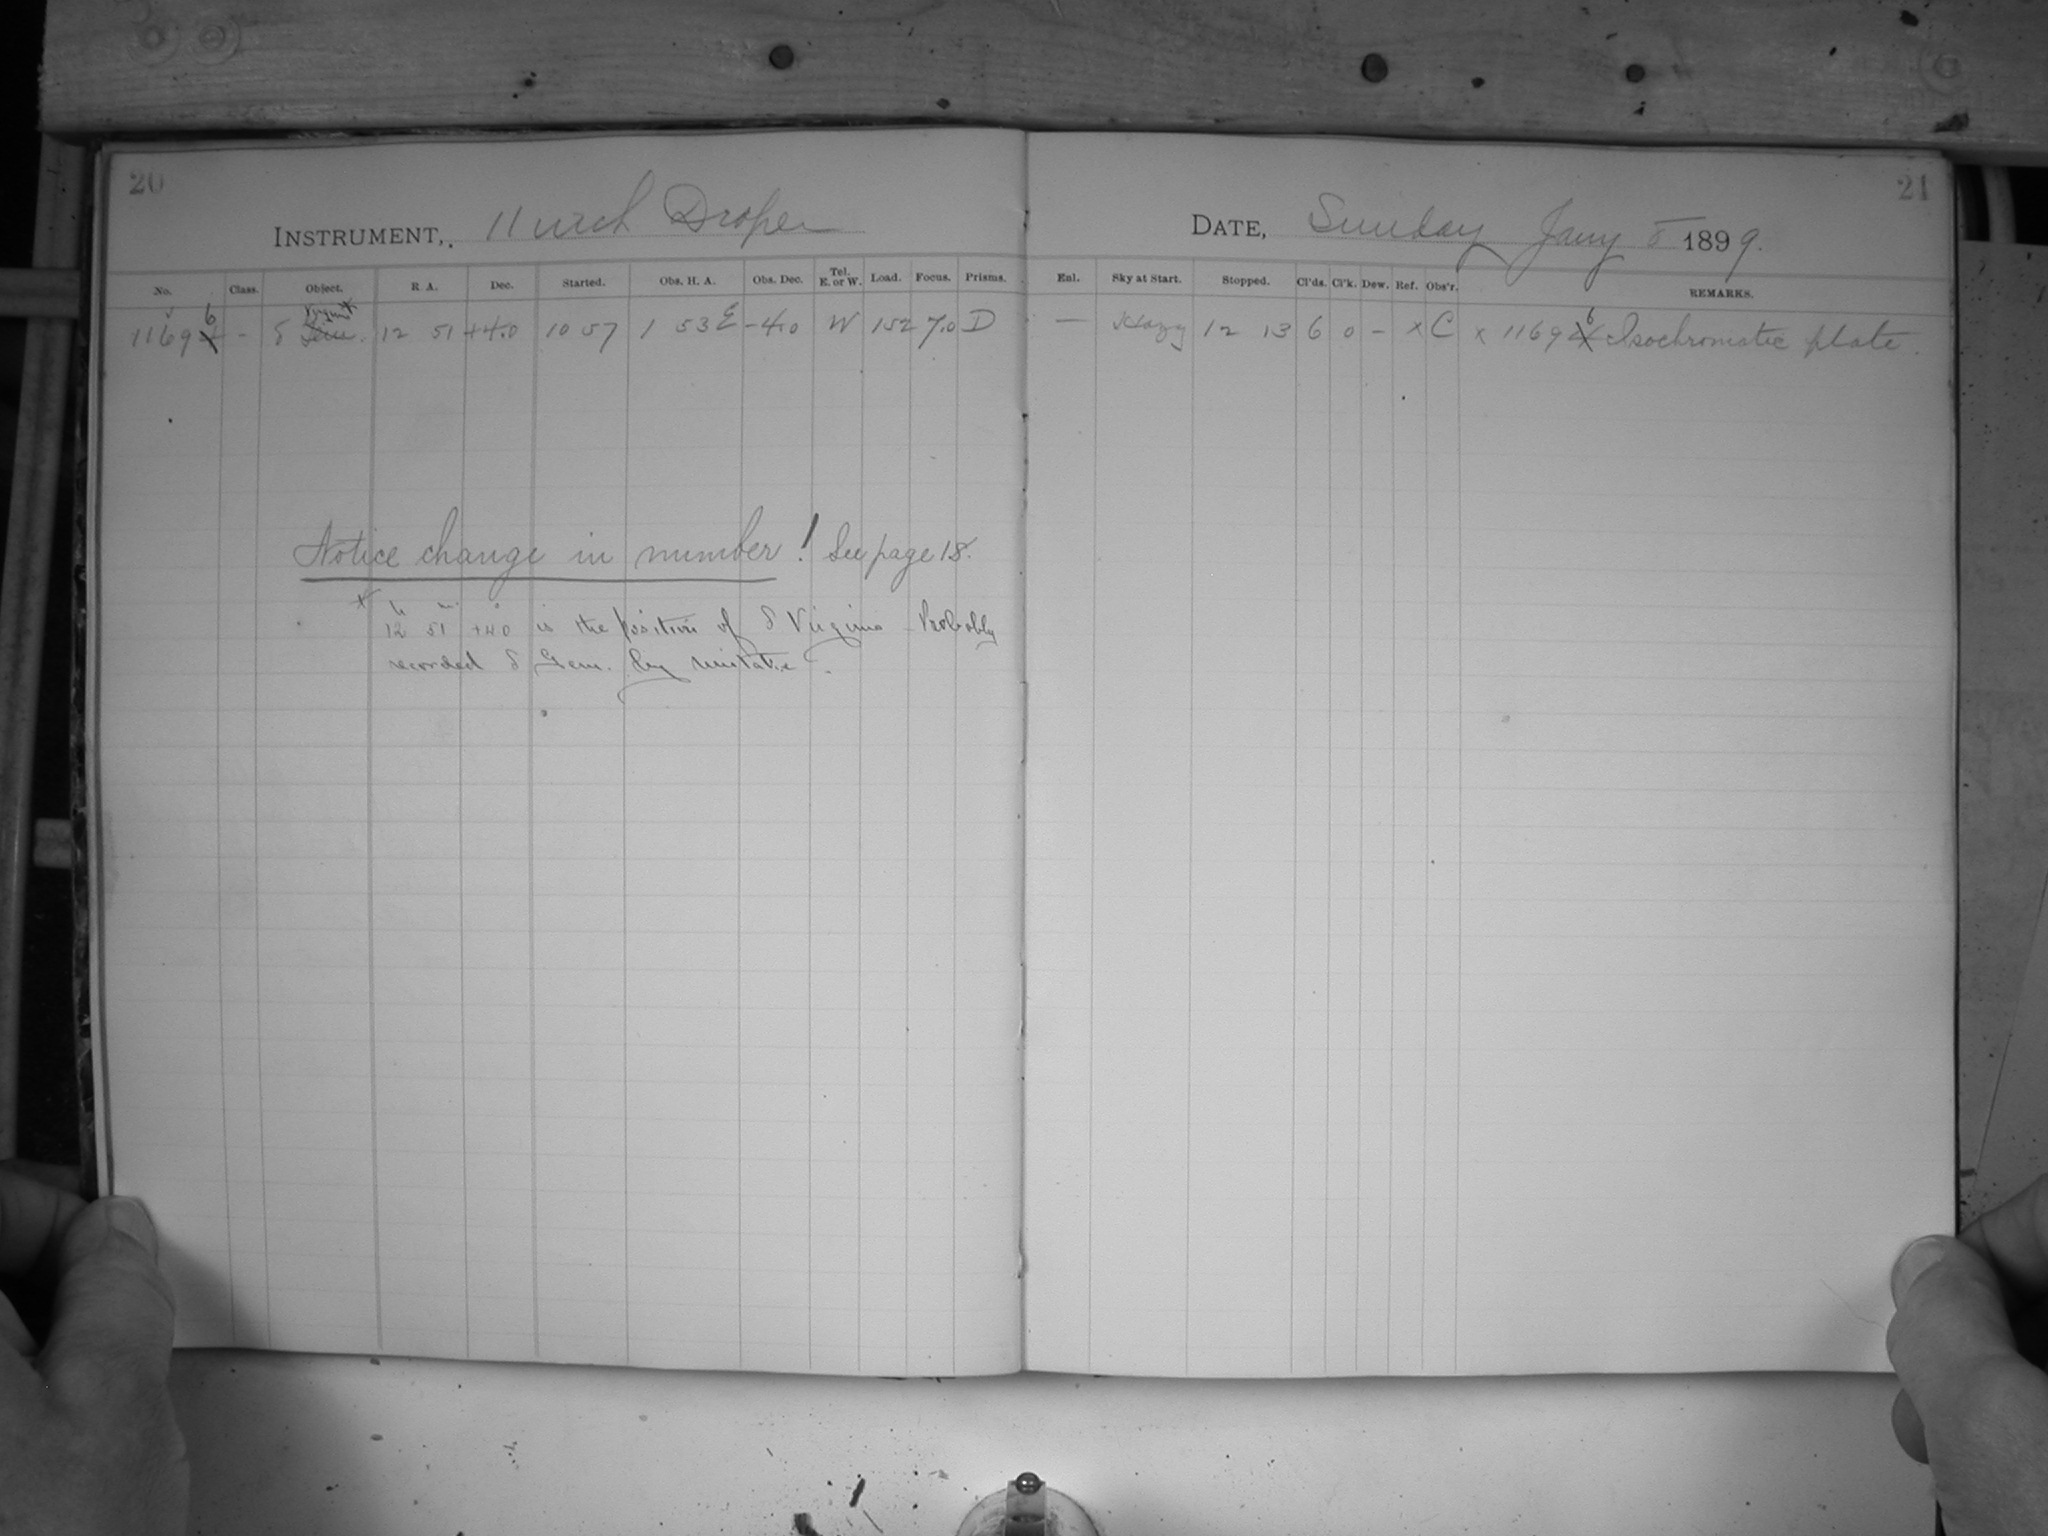 20
INSTRUMENT, 11 inch Draper
No. Class. Object. R. A. Dec. Started. Obs. H. A. Obs. Dec. Tel. E. or W. Load. Focus. Prisms.
6 Virginis*
11694 - δ Gem. 12 51 +4.0 10 57 1 53 E -4.0 W 152 7.0 D
Notice change in number! See page 18.
* h m °
12 51 +4.0 is the position of δ Virginis - Probably
recorded δ Gem. by mistake.
21
DATE, Sunday Jany 8 1899.
Enl. Sky at Start. Stopped. Cl'ds. Cl'k. Dew. Ref. Obs'r. REMARKS.
6
— Hazy 12 13 6 0 - x C x 11694 Isochromatic plate.